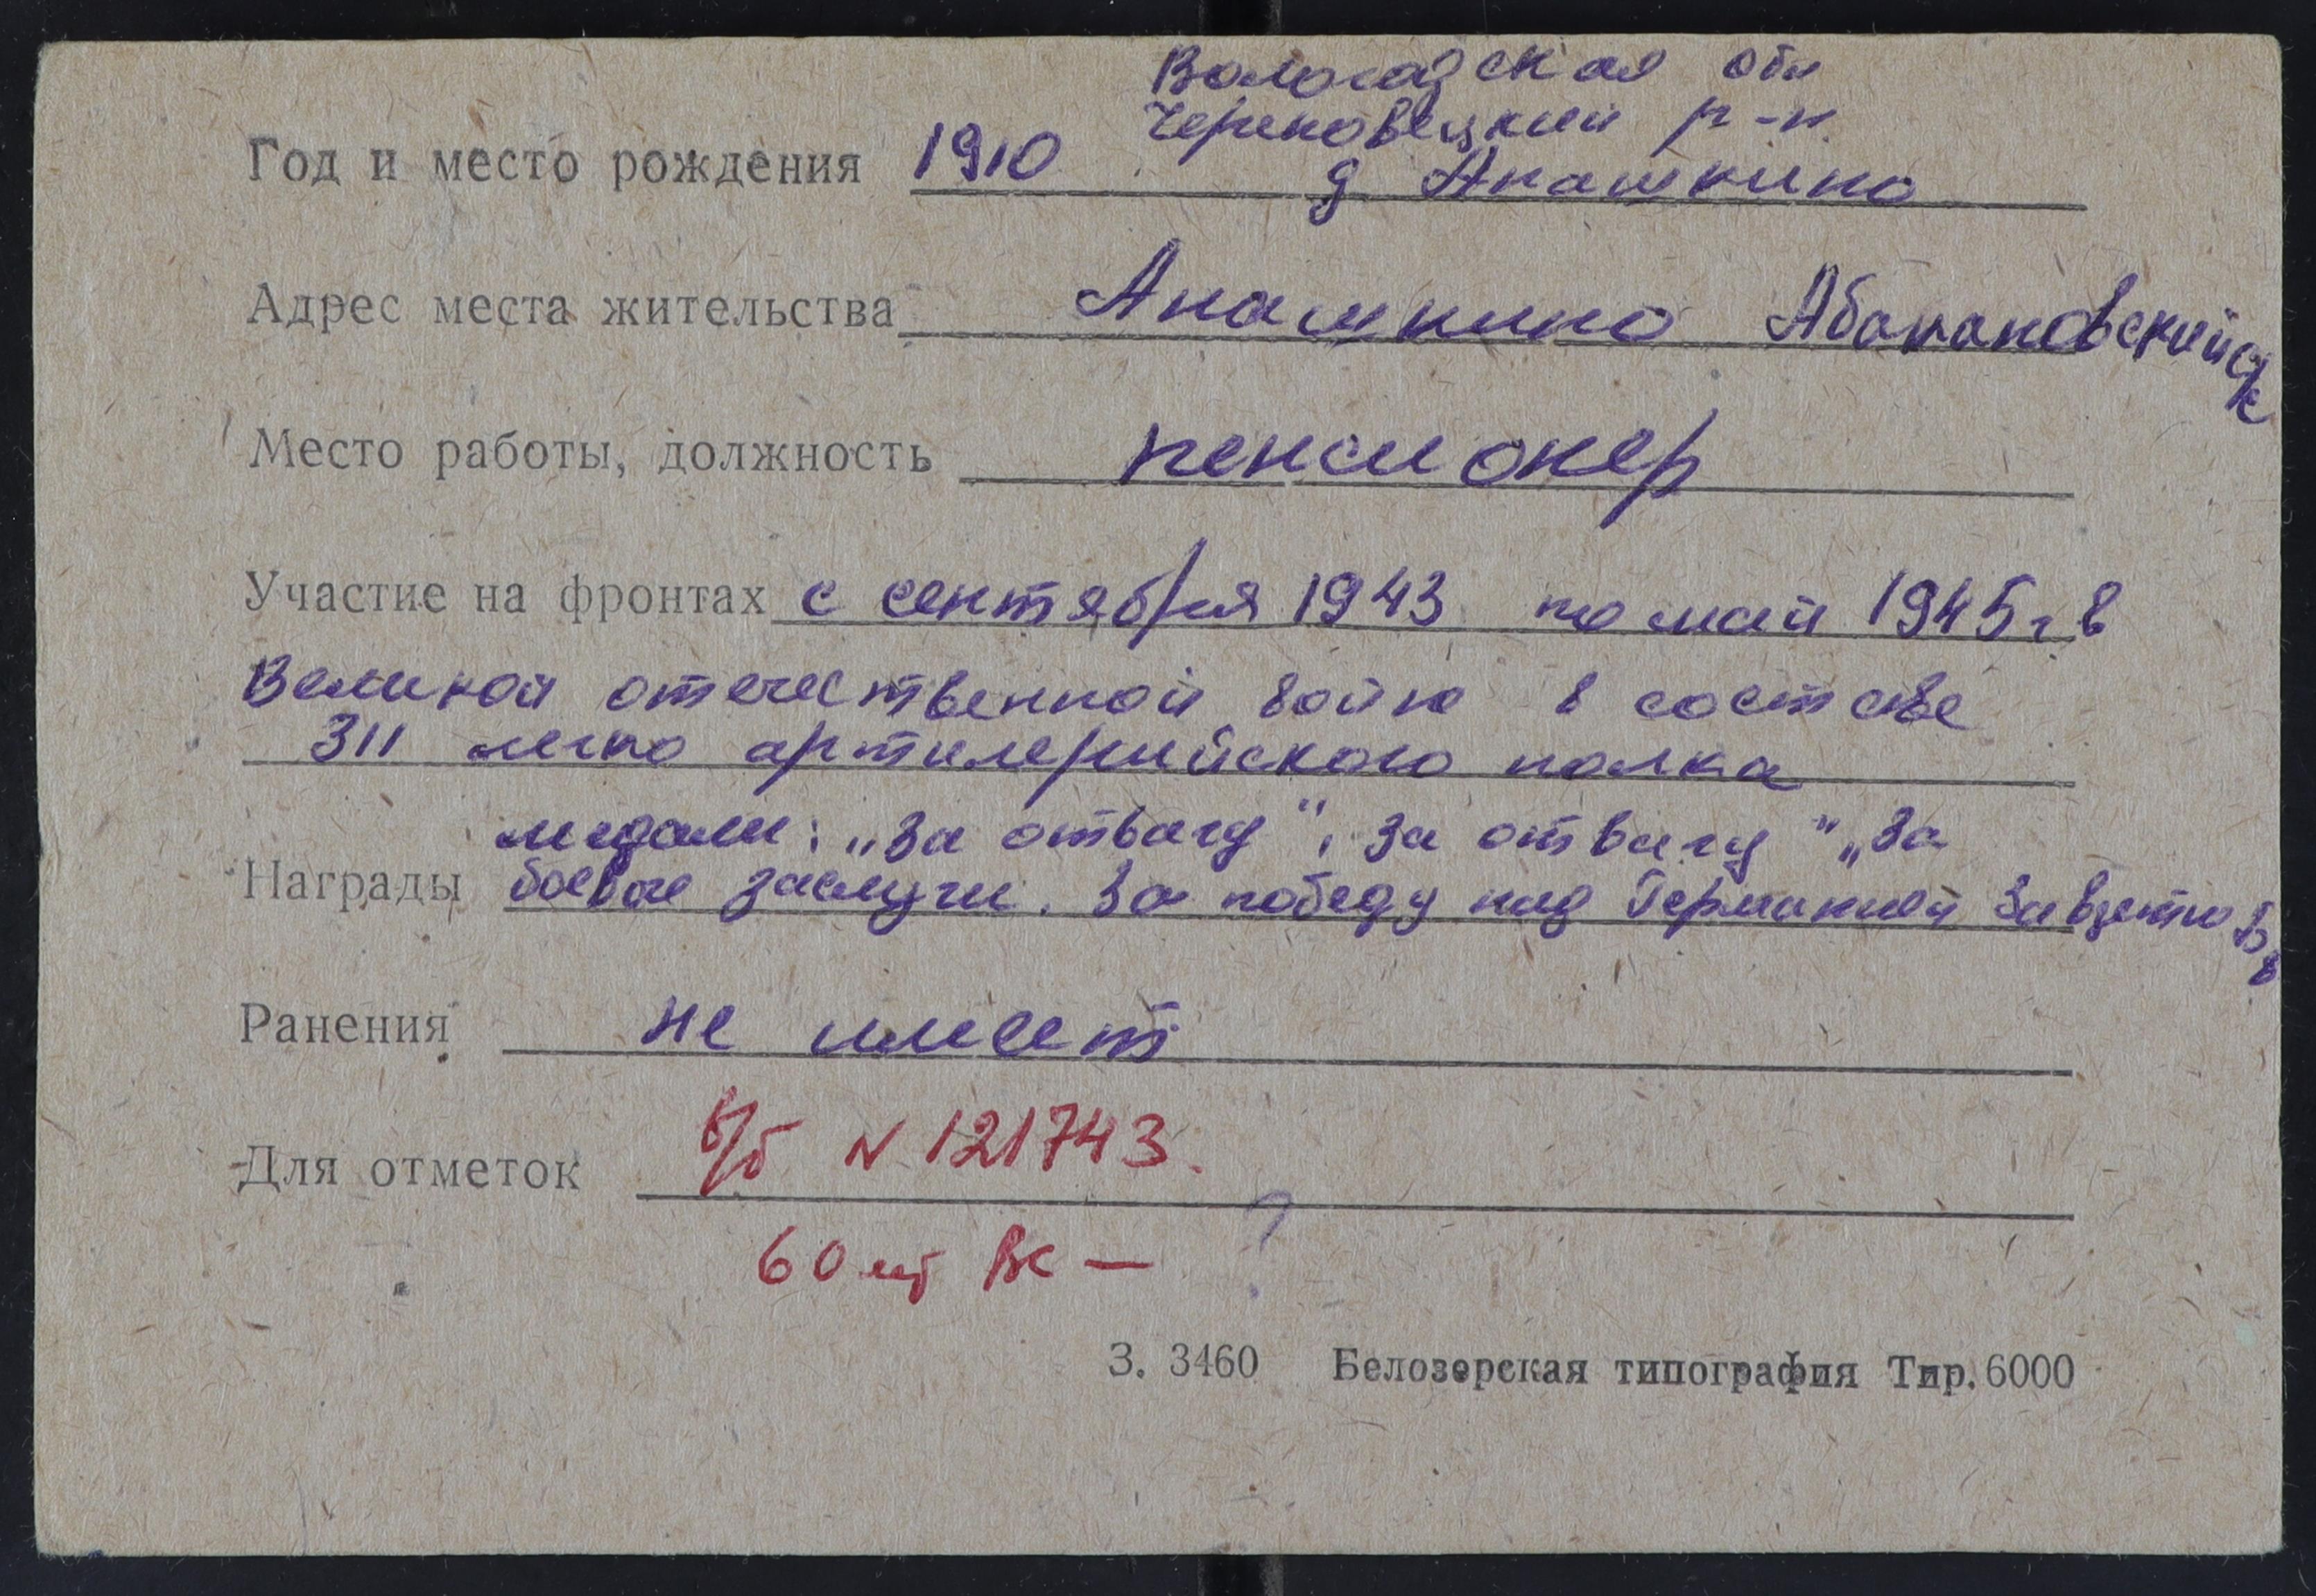 Вологодская обл
Череповецкий р-н
Год и место рождения 1910 д Анашкино
Адрес места жительства Анашкино Абакановский
Место работы, должность пенсионер
Участие на фронтах с сентября 1943 по май 1945 г в
Великой отечественной войне в составе
311 легко артилерийского полка
медали: „За отвагу", За отвагу" „За
Награды боевые заслуги. За победу над Германией За взятие
Ранения не имеет
Для отметок в/б N 121743.
60 лет ВС —
З. 3460 Белозерская типография Тир. 6000